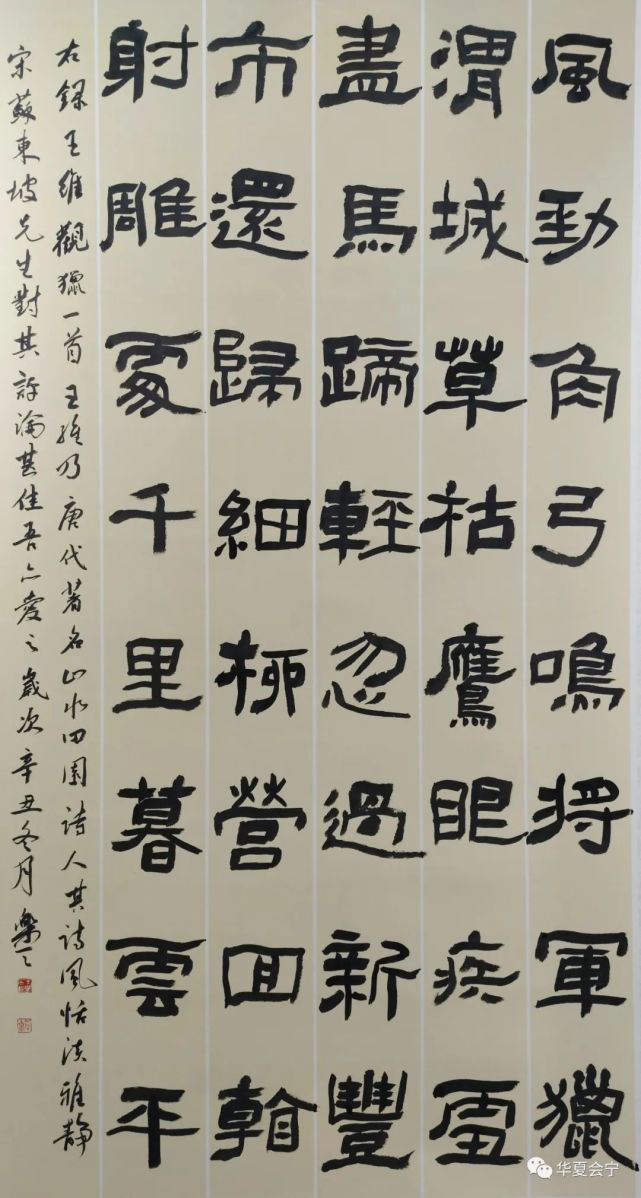 風勁角弓鳴將軍獵
渭城草枯鷹眼疾雪
盡馬蹄輕忽過新豐
市還歸細柳營回看
射雕處千里暮雲平
右録王維觀獵一首王維乃唐代著名山水田園詩人其詩風恬淡雅静
宋蘇東坡先生對其評論甚佳吾亦愛之歲次辛丑冬月樂之
华夏会宁